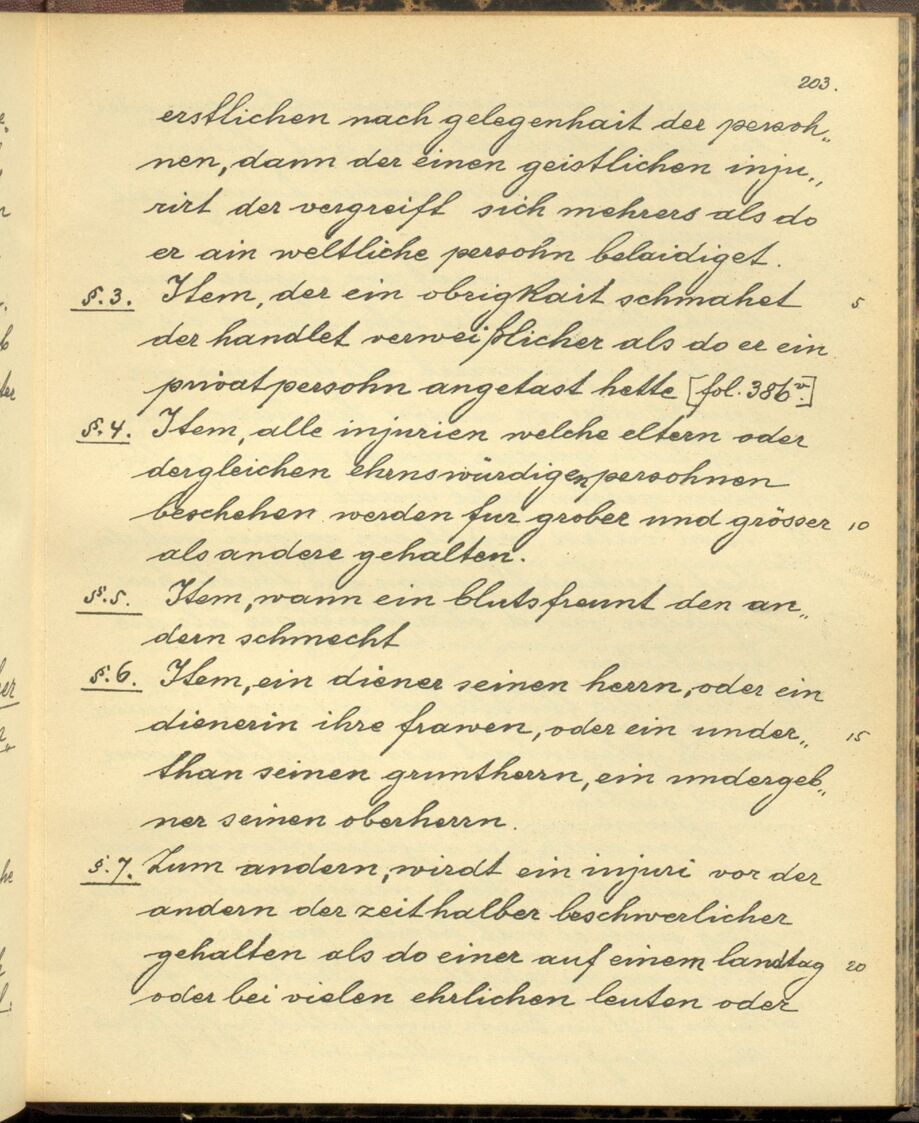 203.
erstlichen nach gelegenhait der persoh„
nen, dann der einen geistlichen inju„
rirt der vergreift sich mehrers als do
er ain weltliche persohn belaidiget.
§.3. Item, der ein obrigkait schmahet 5
der handlet verweißlicher als do er ein
privatpersohn angetast hette [fol. 386v.]
§.4. Item, alle injurien welche eltern oder
dergleichen ehrnswürdigen persohnen
beschehen werden fur grober und grösser 10
als andere gehalten.
§.5. Item, wann ein blutsfreunt den an„
dern schmecht
§.6. Item, ein diener seinen herrn, oder ein
dienerin ihre frawen, oder ein under„ 15
than seinen gruntherrn, ein undergeb„
ner seinen oberherrn.
§.7. Zum andern, wirdt ein injuri vor der
andern der zeit halber beschwerlicher
gehalten als do einer auf einem landtag 20
oder bei vielen ehrlichen leuten oder